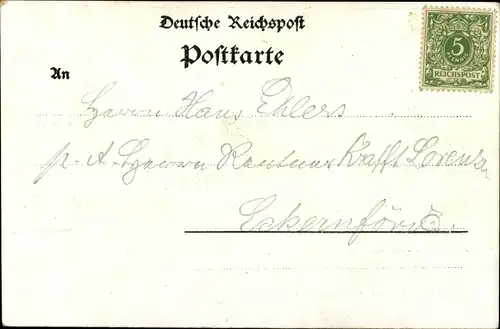 Deutsche Reichspost
Postkarte
5
PFENNIG
REICHSPOST
An
Herrn Hans Ehlers
p. A. Herrn Rentner Krafft Lorenz
Eckernförde.